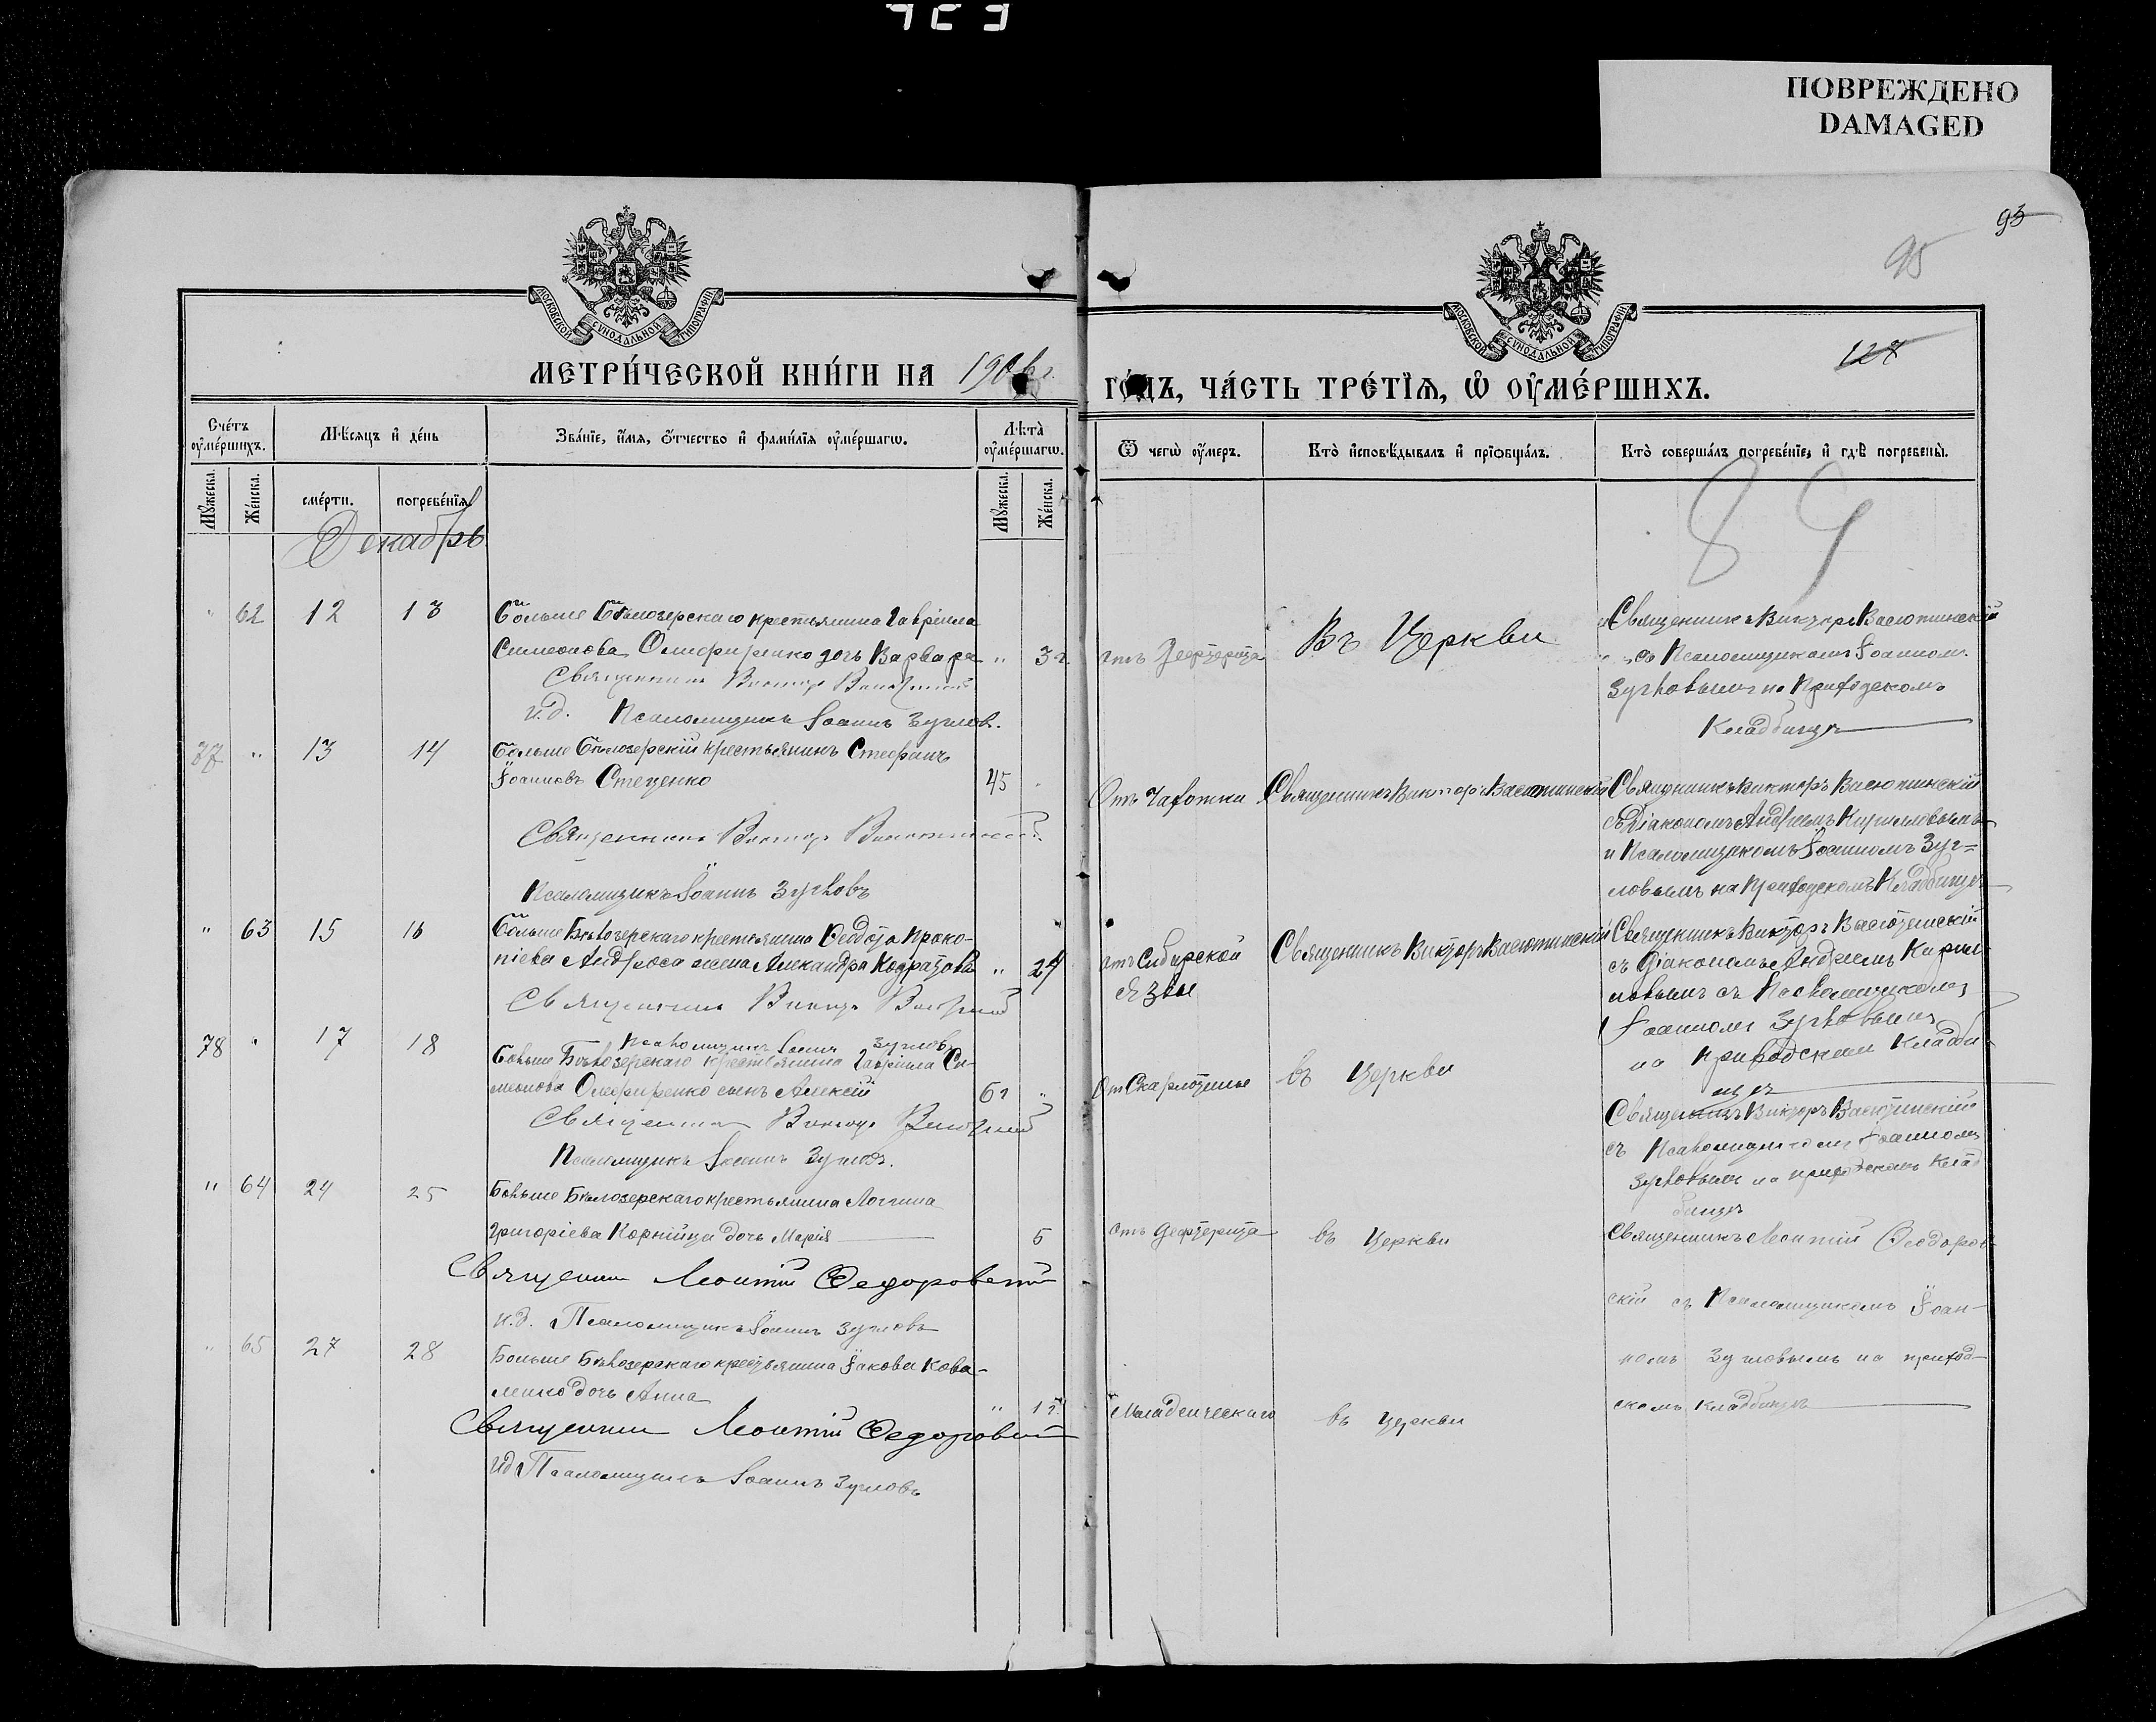 ПОВРЕЖДЕНО
DAMAGED
93
95
МОСКОВСКОЙ СѴНОДАЛЬНОЙ ТИПОГРАФІИ
МОСКОВСКОЙ СѴНОДАЛЬНОЙ ТИПОГРАФІИ
128
МЕТРИ́ЧЕСКОЙ КНИ́ГИ НА 1906 г.
ГО́ДЪ, ЧА́СТЬ ТРЕ́ТІѦ, Ѡ҆ ОУ҆МЕ́РШИХЪ.
Сче́тъ оу҆ме́ршихъ.
Мѣ́сѧцъ и҆ де́нь
Зва́нїе, и҆́мѧ, ѻ҆́тчество и҆ фами́лїѧ оу҆ме́ршагѡ.
Лѣ́та оу҆ме́ршагѡ.
Ѿ чегѡ̀ оу҆́меръ.
Кто̀ и҆сповѣ́дывалъ и҆ прїѡбща́лъ.
Кто̀ соверша́лъ погребе́нїе, и҆ гдѣ̀ погребены̀.
Мꙋ́жеска.
Же́нска.
сме́рти.
погребе́нїѧ.
Мꙋ́жеска.
Же́нска.
Декабрь
89
" 62 12 13
Больше Бѣлозерскаго крестьянина Гавріила
Симеонова Олефиренко дочь Варвара " 3 г.
Священникъ Викторъ
и.д. Псаломщикъ Іоаннъ Зугловъ.
отъ Дефтерита
Въ Церкви
Священникъ Викторъ Васютинскій
съ Псаломщикомъ Іоанномъ
Зугловымъ на Приходскомъ
Кладбищѣ
77 " 13 14
Больше Бѣлозерскій крестьянинъ Стефанъ
Іоанновъ Стеценко 45
Священникъ Викторъ Васютинскій
Псаломщикъ Іоаннъ Зугловъ
Отъ Чахотки
Священникъ Викторъ Васютинскій
Священникъ Викторъ Васютинскій
съ Діакономъ Андреемъ Кирилловымъ
и Псаломщикомъ Іоанномъ Зуг=
ловымъ на Приходскомъ Кладбищѣ
" 63 15 16
Больше Бѣлозерскаго крестьянина Ѳеодота Проко-
піева Андроса жена Александра Кодратова " 24
Священникъ Викторъ
Псаломщикъ Іоаннъ Зугловъ
отъ Сибирской
язвы
Священникъ Викторъ Васютинскій
Священникъ Викторъ Васютинскій
съ Діакономъ Андреемъ Кирил-
ловымъ съ Псаломщикомъ
Іоанномъ Зугловымъ
на приходскомъ Кладби-
щѣ
78 " 17 18
Больше Бѣлозерскаго крестьянина Гавріила Си-
меонова Олефиренко сынъ Алексій 6 г "
Священникъ Викторъ
Псаломщикъ Іоаннъ Зугловъ.
От Скарлотины
въ Церкви
Священникъ Викторъ Васютинскій
съ Псаломщикомъ Іоанномъ
Зугловымъ на приходскомъ Клад
бищѣ
" 64 24 25
Больше Бѣлозерскаго крестьянина Логгина
Григоріева Корнійца дочь Марія 5
Священникъ Леонтій Ѳедоровскій
и.д. Псаломщикъ Іоаннъ Зугловъ
отъ Дефтерита
въ Церкви
Священникъ Леонтій Ѳеодоров-
скій съ Псаломщикомъ Іоан-
номъ Зугловымъ на приход-
скомъ кладбищѣ
" 65 27 28
Больше Бѣлозерскаго крестьянина Іакова Кова-
ленко дочь Анна "
Священникъ Леонтій Ѳедоровскій
ид Псаломщикъ Іоаннъ Зугловъ
Младенческаго
въ Церкви